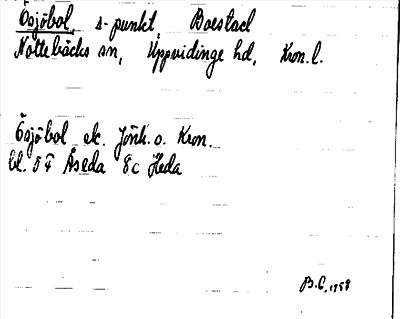 Ösjöbol, s-punkt, Boestad
Nottebäcks sn, Uppvidinge hd, Kron. l.
Ösjöbol ek. Jönk. o. Kron.
bl. 5 F Åseda 8c Heda
B.C. 1958